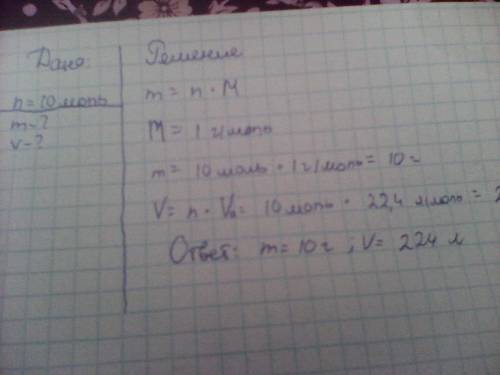 Дано:
n = 10 моль
m - ?
v - ?
Решение
m = n · M
M = 1 г/моль
m = 10 моль · 1 г/моль = 10 г
V = n · Vₙ = 10 моль · 22,4 л/моль = 2
Ответ: m = 10 г ; V = 224 л